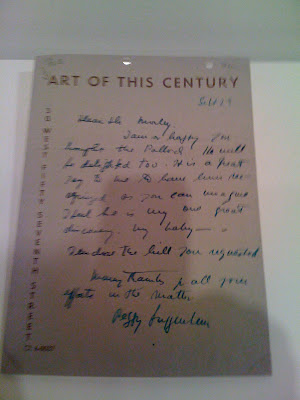 ART OF THIS CENTURY
30 WEST FIFTY SEVENTH STREET
Dear Mr Morley,
I am so happy you
bought the Pollock. He will
be delighted too. It is a great
joy to me to have him rec-
ognized as you can imagine
I feel he is my one great
discovery. my baby
I enclose the bill you requested
Many thanks for all your
efforts in the matter
Peggy Guggenheim